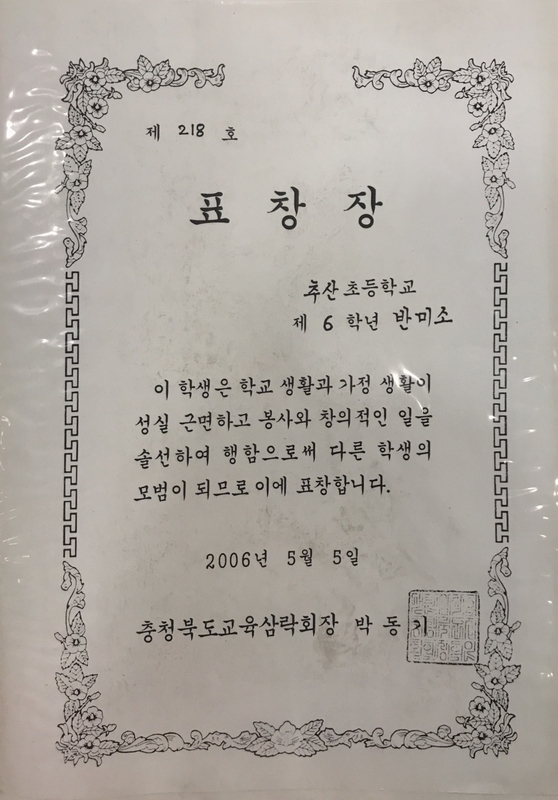 제 218 호
표 창 장
추산 초등학교
제 6 학년 반미조
이 학생은 학교 생활과 가정 생활이
성실 근면하고 봉사와 창의적인 일을
솔선하여 행함으로써 다른 학생의
모범이 되므로 이에 표창합니다.
2006년 5월 5일
충청북도교육삼락회장 박 동 기